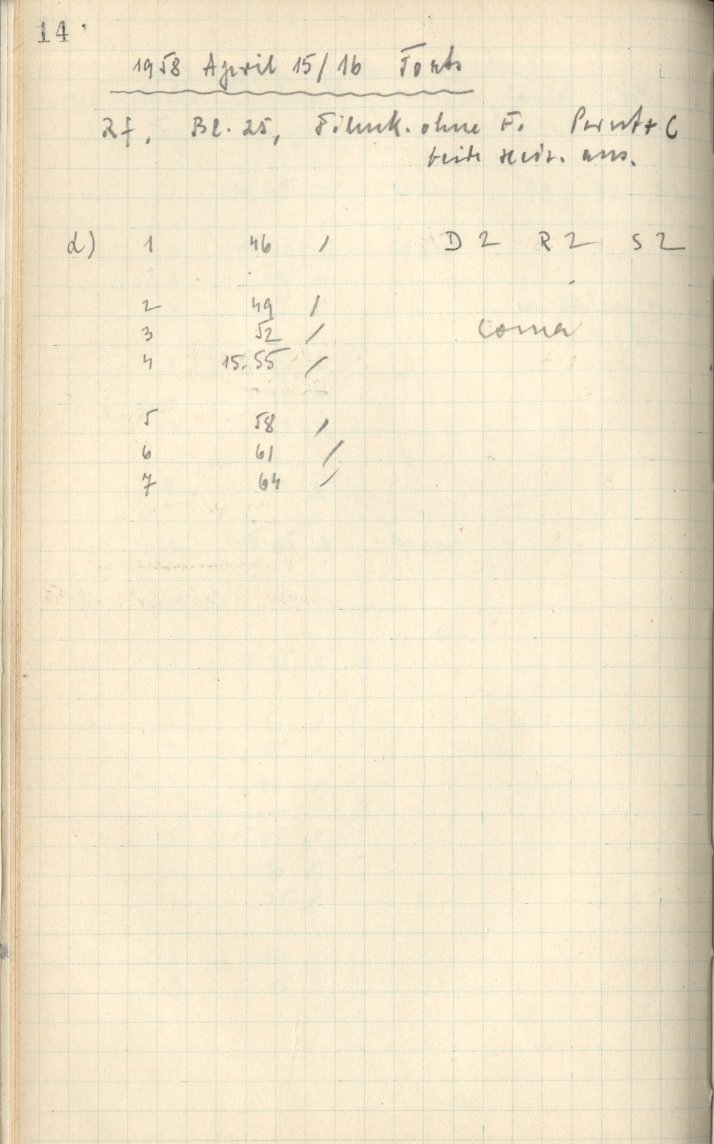 14
1958 April 15/16
Rf. Bl. 25, Filmk. ohne F.
beide aus.
d) 1 46 / D2 R2 S2
2 49 /
3 52 / Coma
4 15.55 /
5 58 /
6 61 /
7 64 /